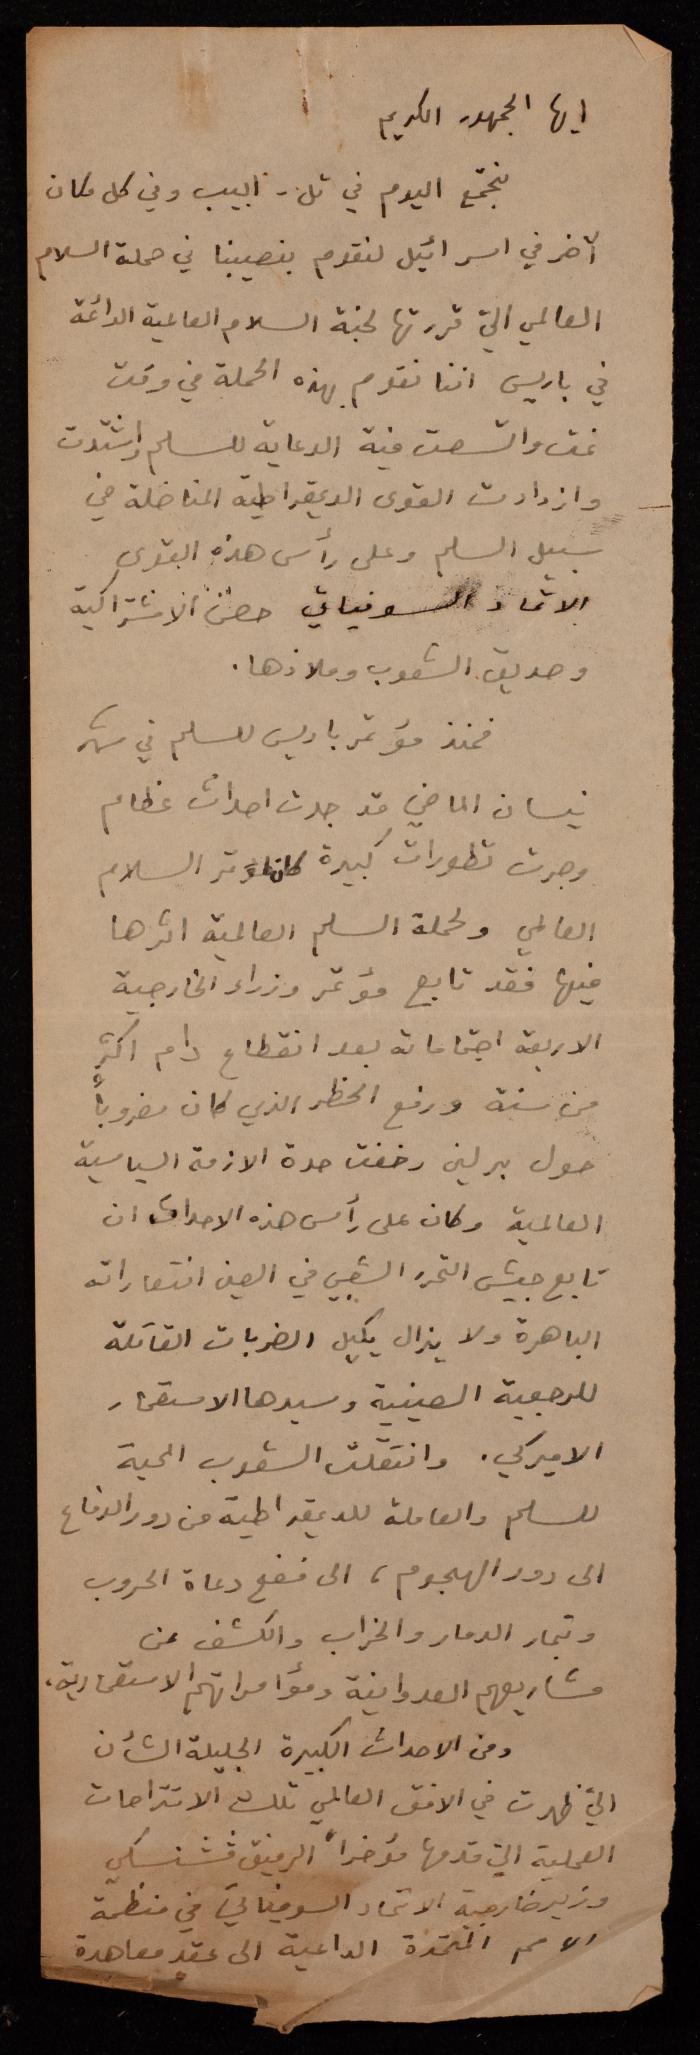 ايها الجمهور الكريم
نجتمع اليوم في تل - ابيب وفي كل مكان
آخر في اسرائيل لنقوم بنصيبنا في حملة السلام
العالمي التي قررتها لجنة السلام العالمية الدائمة
في باريس اننا نقوم بهذه الحملة في وقت
نمت واتسعت فيه الدعاية للسلم واشتدت
وازدادت القوى الديمقراطية المناضلة في
سبيل السلم وعلى رأس هذه القوى
الاتحاد السوفياتي حصن الاشتراكية
وصديق الشعوب وملاذها .
فمنذ مؤتمر باريس للسلم في شهر
نيسان الماضي قد جدت احداث عظام
وجرت تطورات كبيرة كان لمؤتمر السلام
العالمي ولحملة السلم العالمية اثرها
فيها فقد تابع مؤتمر وزراء الخارجية
الاربعة اجتماعاته بعد انقطاع دام اكثر
من سنة ورفع الحظر الذي كان مضروباً
حول برلين وخفت حدة الازمة السياسية
العالمية وكان على رأس هذه الاحداث ان
تابع جيش التحرر الشعبي في الصين انتصاراته
الباهرة ولا يزال يكيل الضربات القاتلة
للرجعية الصينية وسيدها الاستعمار
الاميركي . وانتقلت الشعوب المحبة
للسلم والعاملة للديمقراطية من دور الدفاع
الى دور الهجوم ، الى فضح دعاة الحروب
وتجار الدمار والخراب والكشف عن
مشاريعهم العدوانية ومؤامراتهم الاستعمارية .
ومن الاحداث الكبيرة الجليلة الشأن
التي ظهرت في الافق العالمي تلك الاقتراحات
العملية التي قدمها مؤخراً الرفيق فشنسكي
وزير خارجية الاتحاد السوفياتي في منظمة
الامم المتحدة الداعية الى عقد معاهدة